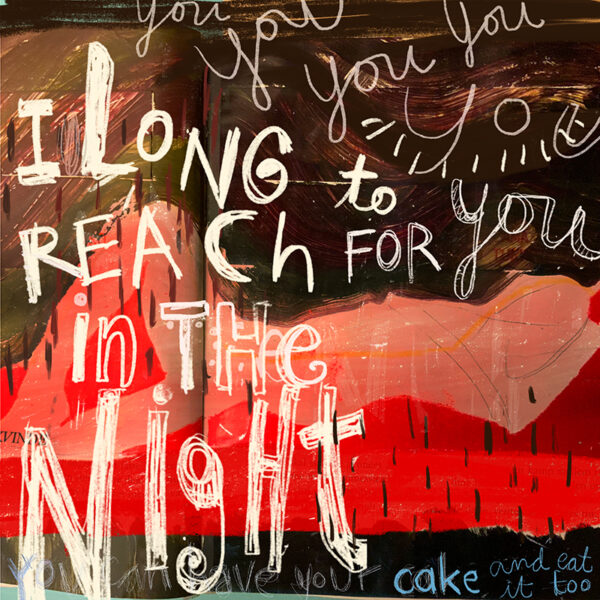 you you you
you you
you
I LONG to
REACh FOR you
in THe
NighT
You can have your cake and eat
it too